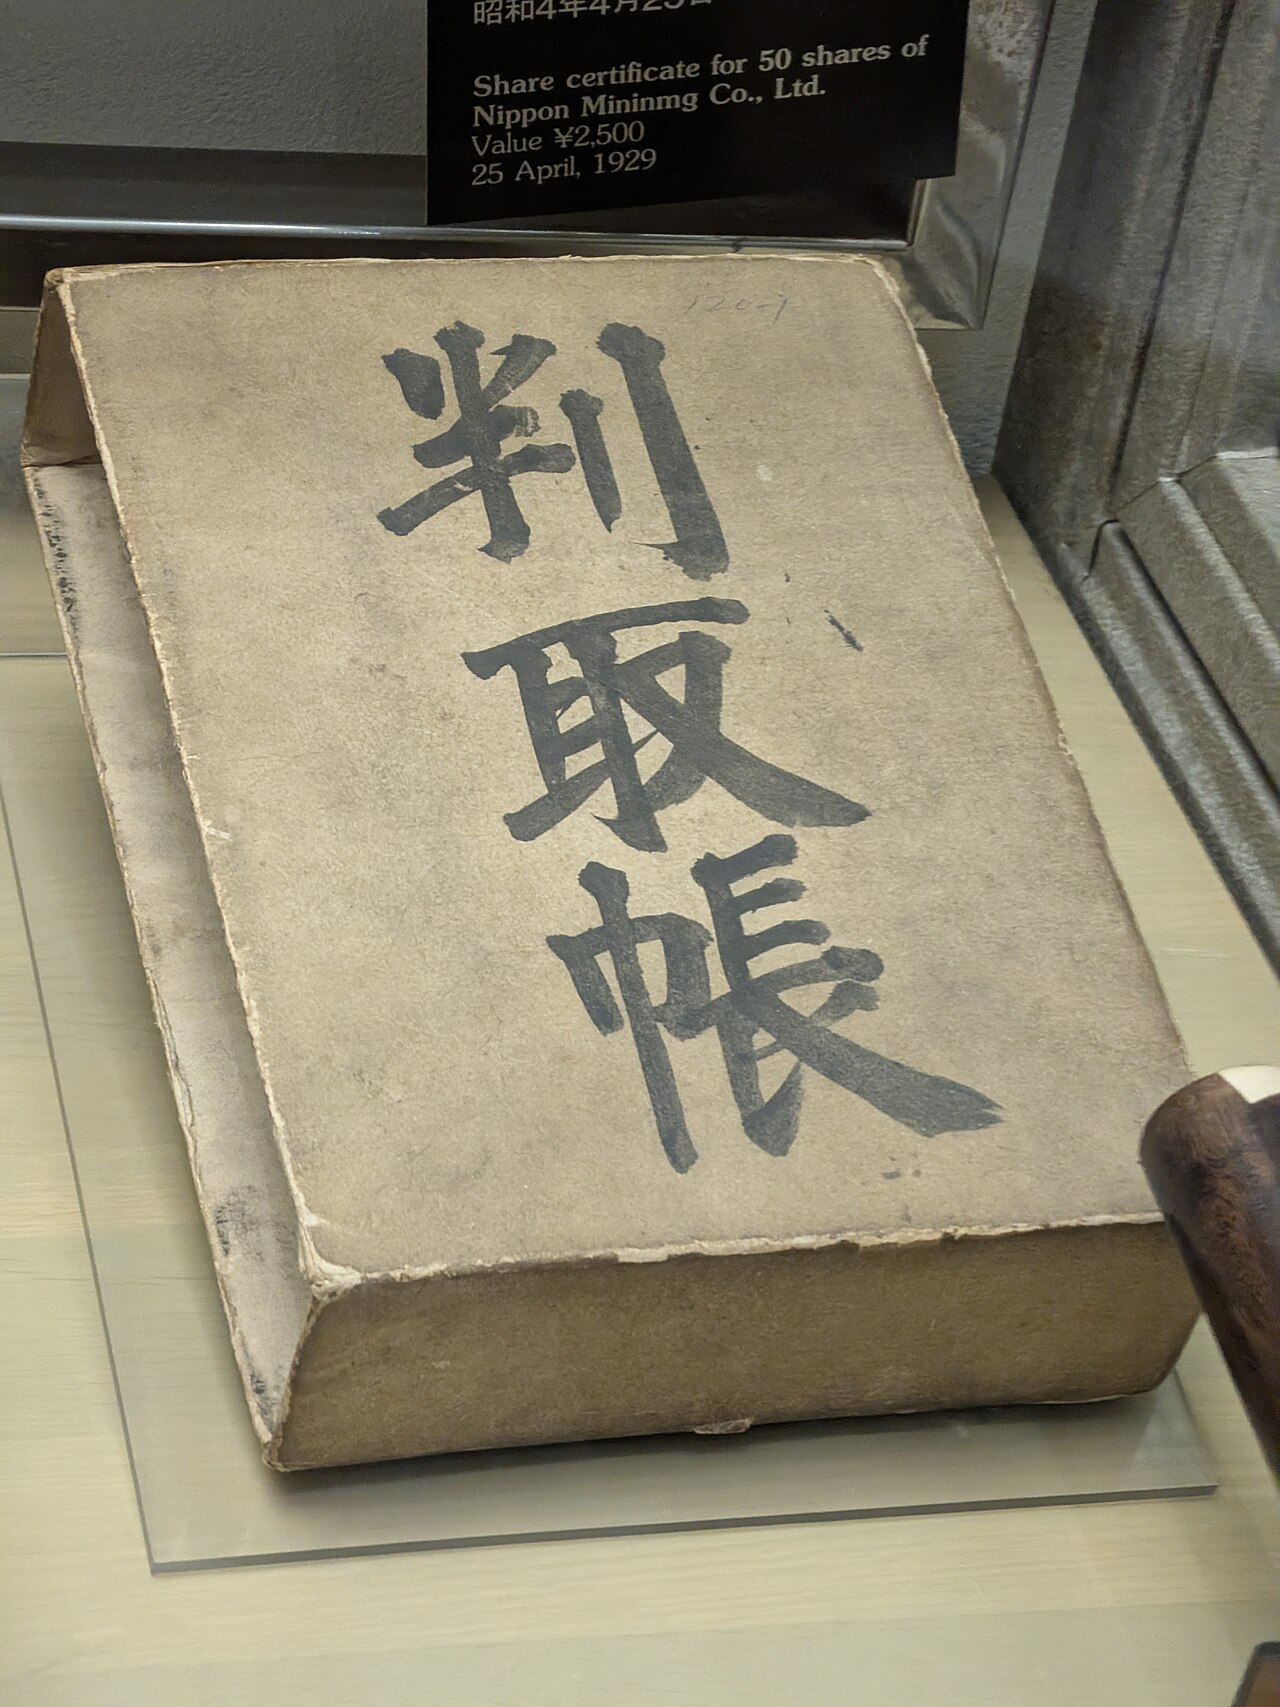 昭和4年4月25日
Share certificate for 50 shares of
Nippon Mininmg Co., Ltd.
Value ¥2,500
25 April, 1929
判取帳